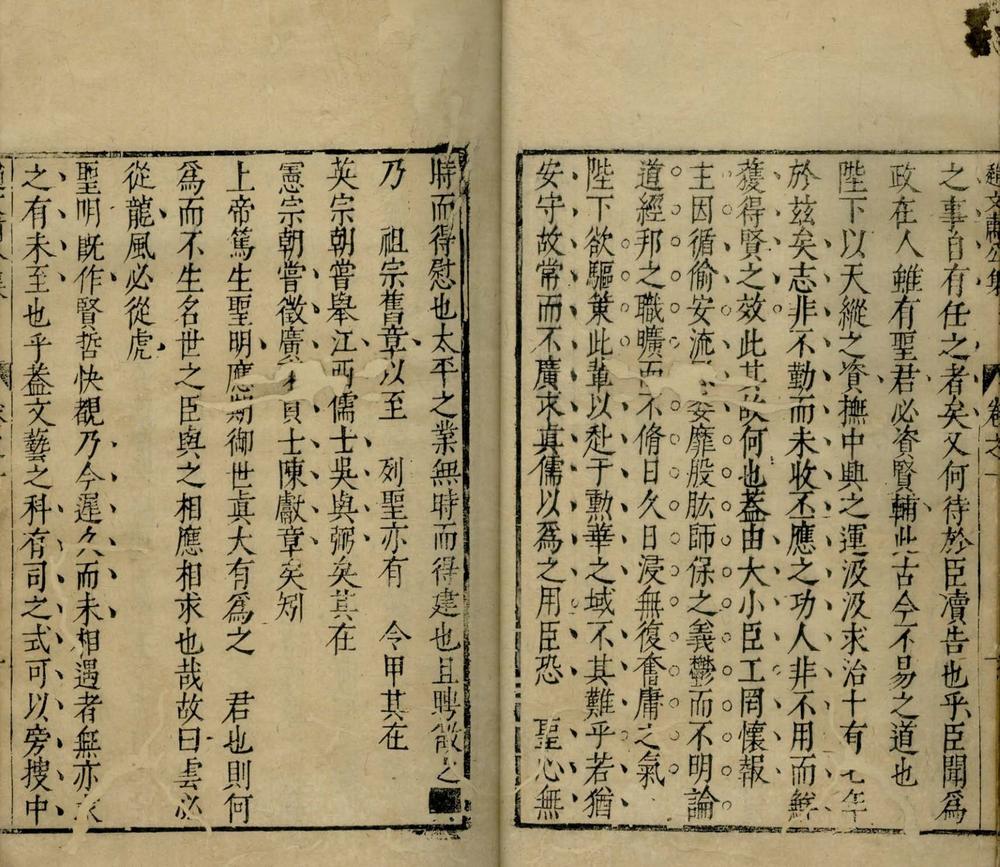 趙文肅公集 卷之
之事自有任之者矣又何待於臣瀆告也乎臣聞爲
政在人雖有聖君必資賢輔此古今不易之道也
陛下以天縱之資撫中興之運汲汲求治十有七年
於玆矣志非不勤而未收丕應之功人非不用而鮮
獲得賢之效此其故何也葢由大小臣工罔懷報
主因循偷安流 妄靡股肱師保之義鬱而不明論
道經邦之職曠而不脩日久日浸無復奮庸之氣
陛下欲驅策此輩以赴于勳華之域不其難乎若猶
安守故常而不廣求真儒以爲之用臣恐 聖心無
時而得慰也太平之業無時而得建也且聘徵之
乃 祖宗舊章以至 列聖亦有 令甲其在
英宗朝嘗舉江西儒士吳與弼矣其在
憲宗朝嘗徵廣 貢士陳獻章矣矧
上帝篤生聖明應期御世眞大有爲之 君也則何
爲而不生名世之臣與之相應相求也哉故曰雲必
從龍風必從虎
聖明旣作賢哲快覩乃今遲久而未相遇者無亦求
之有未至也乎葢文藝之科有司之式可以旁搜中